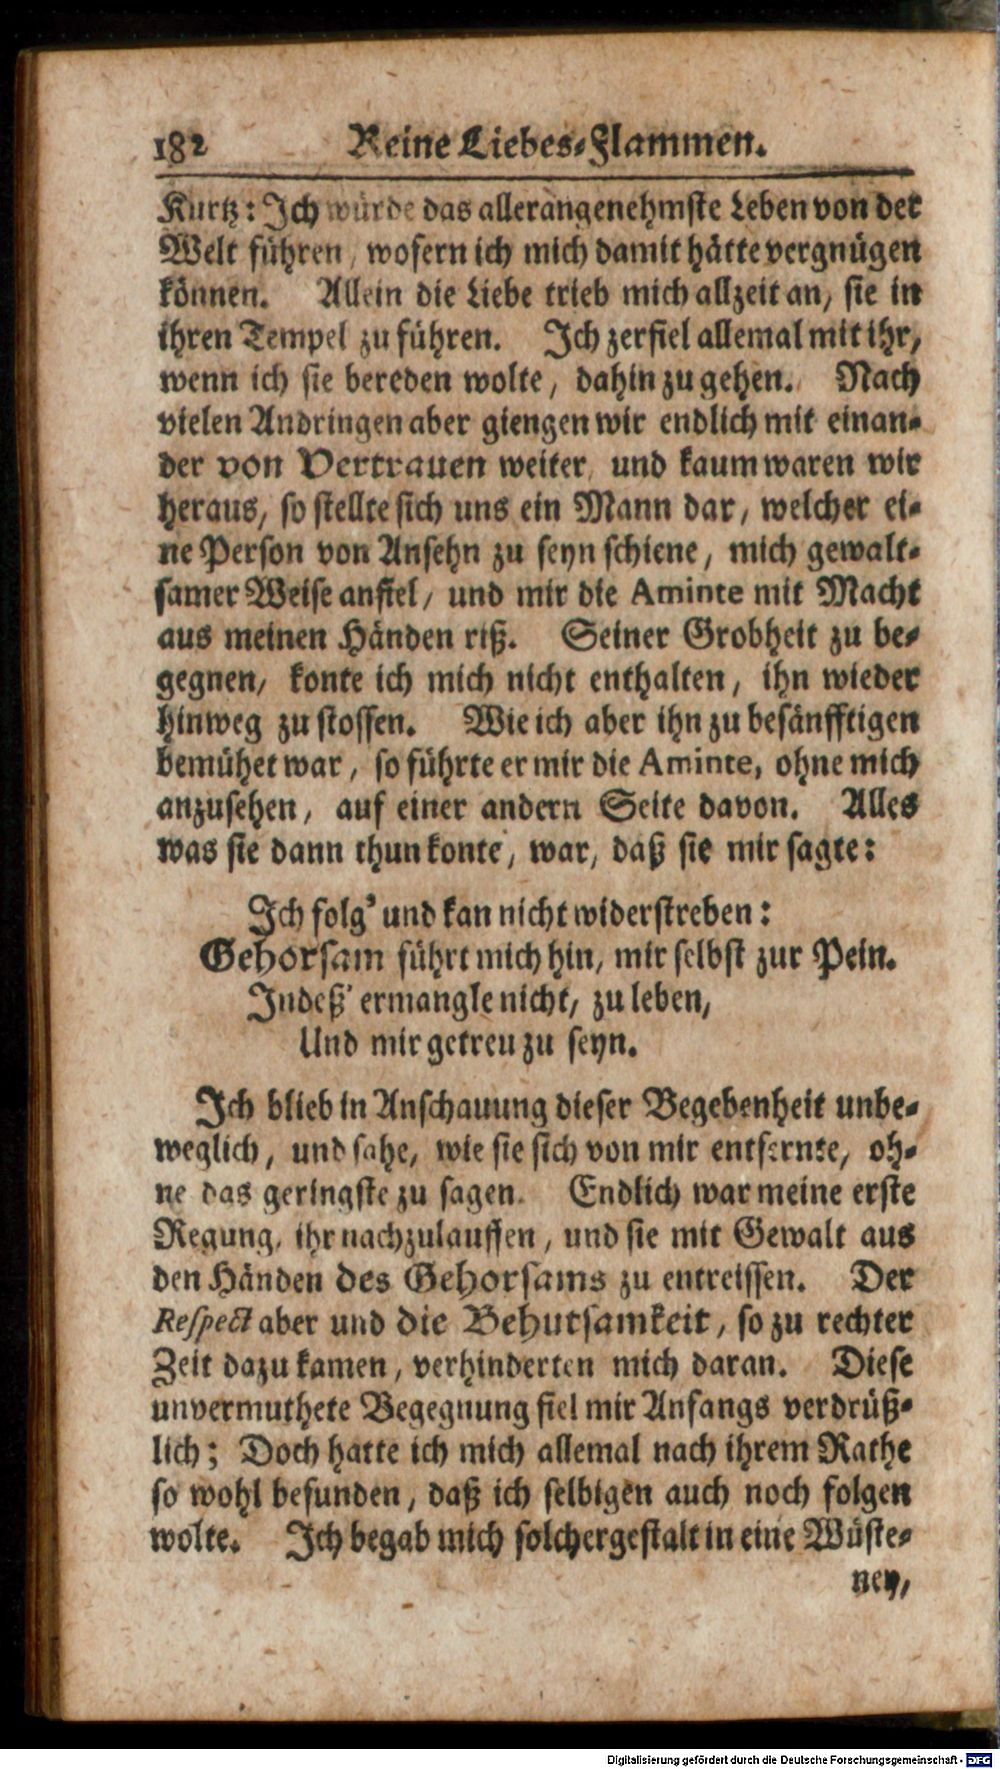 182 Reine Liebes-Flammen.
Kurtz: Ich würde das allerangenehmste Leben von der
Welt führen, wofern ich mich damit hätte vergnügen
können. Allein die Liebe trieb mich allzeit an, sie in
ihren Tempel zu führen. Ich zerfiel allemal mit ihr,
wenn ich sie bereden wolte, dahin zu gehen. Nach
vielen Andringen aber giengen wir endlich mit einan-
der von Vertrauen weiter, und kaum waren wir
heraus, so stellte sich uns ein Mann dar, welcher ei-
ne Person von Ansehn zu seyn schiene, mich gewalt-
samer Weise anfiel, und mir die Aminte mit Macht
aus meinen Händen riß. Seiner Grobheit zu be-
gegnen, konte ich mich nicht enthalten, ihn wieder
hinweg zu stossen. Wie ich aber ihn zu besänfftigen
bemühet war, so führte er mir die Aminte, ohne mich
anzusehen, auf einer andern Seite davon. Alles
was sie dann thun konte, war, daß sie mir sagte:
Ich folg' und kan nicht widerstreben:
Gehorsam führt mich hin, mir selbst zur Pein.
Indeß' ermangle nicht, zu leben,
Und mir getreu zu seyn.
Ich blieb in Anschauung dieser Begebenheit unbe-
weglich, und sahe, wie sie sich von mir entfernte, oh-
ne das geringste zu sagen. Endlich war meine erste
Regung, ihr nachzulauffen, und sie mit Gewalt aus
den Händen des Gehorsams zu entreissen. Der
Respect aber und die Behutsamkeit, so zu rechter
Zeit dazu kamen, verhinderten mich daran. Diese
unvermuthete Begegnung fiel mir Anfangs verdrüß-
lich; Doch hatte ich mich allemal nach ihrem Rathe
so wohl befunden, daß ich selbigen auch noch folgen
wolte. Ich begab mich solchergestalt in eine Wüste-
ney,
Digitalisierung gefördert durch die Deutsche Forschungsgemeinschaft - DFG